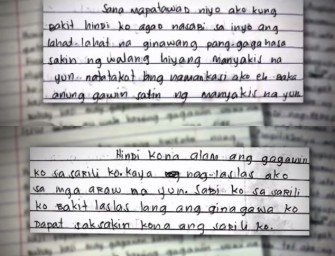 Sana mapatawad niyo ako kung
Bakit hindi ko agad nasabi sa inyo ang
lahat-lahat na ginawang pang-gagahasa
sakin ng walang hiyang manyakis na
yun. natatakot lang naman kasi ako eh. Baka
anung gawin satin ng manyakis na yun
Hindi kona alam ang gagawin
ko sa sarili ko. Kaya nag-laslas ako
sa mga araw na yun. Sabi ko sa sarili
ko Bakit laslas lang ang ginagawa ko
Dapat saksakin kona ang sarili ko.